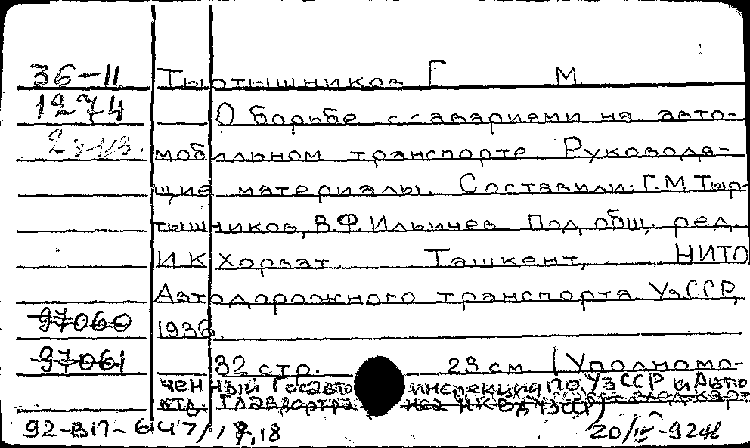 36-11 Тыртышников Г М
1274 О борьбе с авариями на авто-
2 экз. мобильном транспорте. Руководя-
щие материалы. Составили: Г.М.Тыр-
тышников, В.Ф.Ильичев. Под общ. ред.
И.К.Хорват. Ташкент, НИТО
Автодорожного транспорта УзССР,
97060 1936.
97061 32 стр. 23 см (Уполномо-
ченный Госавто инспекция по УзССР и Авто
92-В17-6147/
20/IV-92